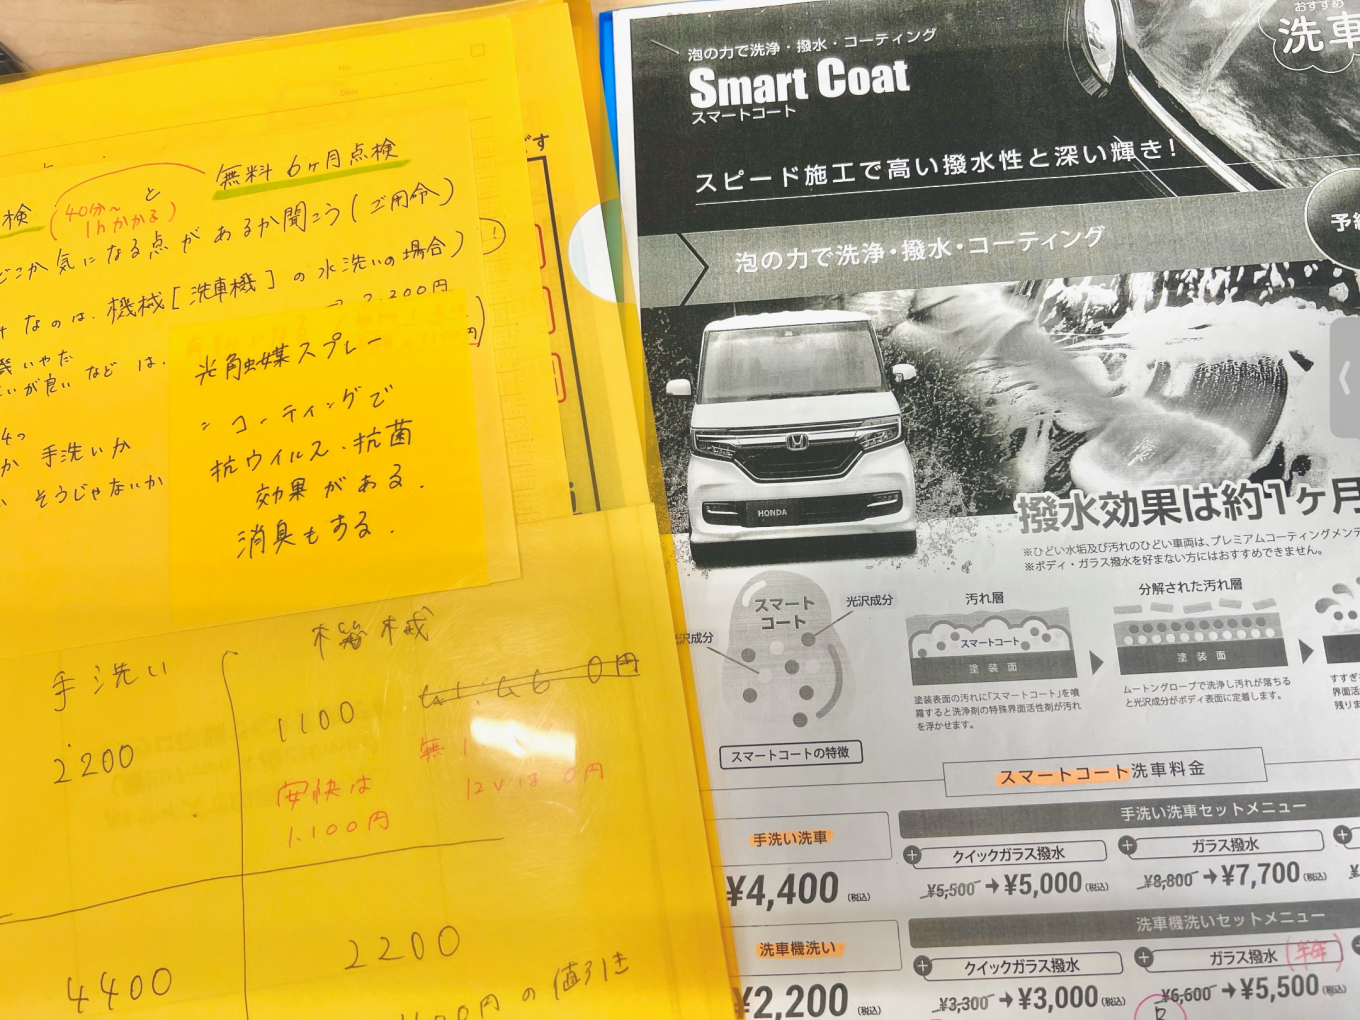 無料 6ヶ月点検
検 (40分〜
1hかかる)
と
どこか気になる点があるか聞こう(ご用命)
なのは、機械[洗車機]の水洗いの場合)
2,200円
いやだ
いが良い などは、
か 手洗いか
い そうじゃないか
です
光触媒スプレー
コーティングで
抗ウイルス・抗菌
効果がある.
消臭もする.
手洗い
機械
2200
1100
0円
無
安快は
1.100円
12Vは0円
4400
2200
円の値引き
おすすめ
洗車
泡の力で洗浄・撥水・コーティング
Smart Coat
スマートコート
スピード施工で高い撥水性と深い輝き!
泡の力で洗浄・撥水・コーティング
予約
HONDA
撥水効果は約1ヶ月
※ひどい水垢及び汚れのひどい車両は、プレミアムコーティングメンテ
※ボディ・ガラス撥水を好まない方にはおすすめできません。
スマート
コート
光沢成分
光沢成分
スマートコートの特徴
汚れ層
スマートコート
塗装面
塗装表面の汚れに「スマートコート」を噴
霧すると洗浄剤の特殊界面活性剤が汚れ
を浮かせます。
分解された汚れ層
塗装面
ムートングローブで洗浄し汚れが落ちる
と光沢成分がボディ表面に定着します。
すすぎ
界面活
残りま
スマートコート洗車料金
手洗い洗車
¥4,400(税込)
手洗い洗車セットメニュー
+ クイックガラス撥水
¥5,500→¥5,000(税込)
+ ガラス撥水
¥8,800→¥7,700(税込)
洗車機洗い
¥2,200(税込)
洗車機洗いセットメニュー
+ クイックガラス撥水
¥3,300→¥3,000(税込)
+ ガラス撥水(半年)
¥6,600→¥5,500(税込)